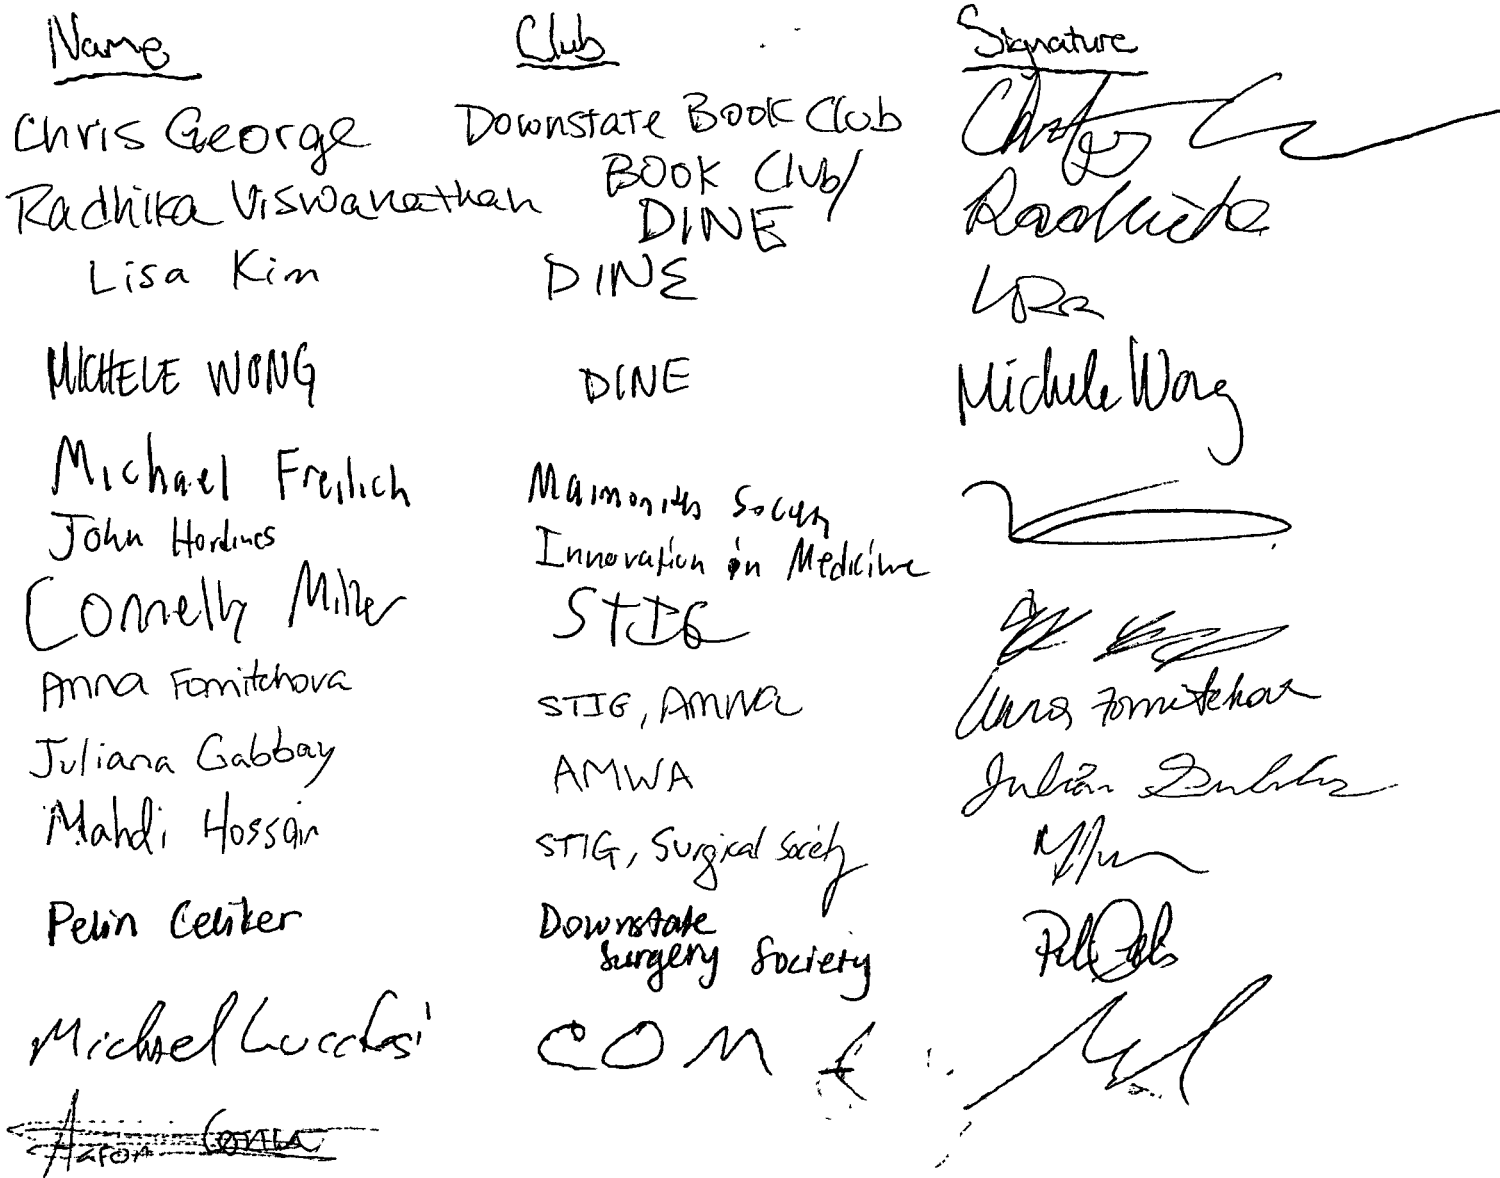 Name Club Signature
Chris George Downstate Book Club
Radhika Viswanathan BOOK Club/ Radhika
DINE
Lisa Kim DINE Lisa
MICHELE WONG DINE Michele Wong
Michael Freilich Maimonides Society
John Innovation in Medicine
Connelly Miller STIG
Anna Fomitchova STIG, AMWA Anna Fomitchova
Juliana Gabbay AMWA
Mahdi Hossain STIG, Surgical Society
Pelin Celiker Downstate
Surgery Society
Michael COM
Aaron